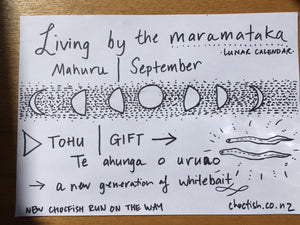 Living by the maramataka
LUNAR CALENDAR
Mahuru | September
TOHU | GIFT →
Te ahunga o uruao
→ a new generation of whitebait
NEW CHOCFISH RUN ON THE WAY
chocfish.co.nz